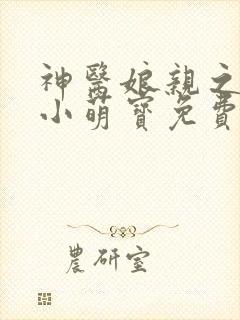 神醫娘親之
小萌寶免費
農研室